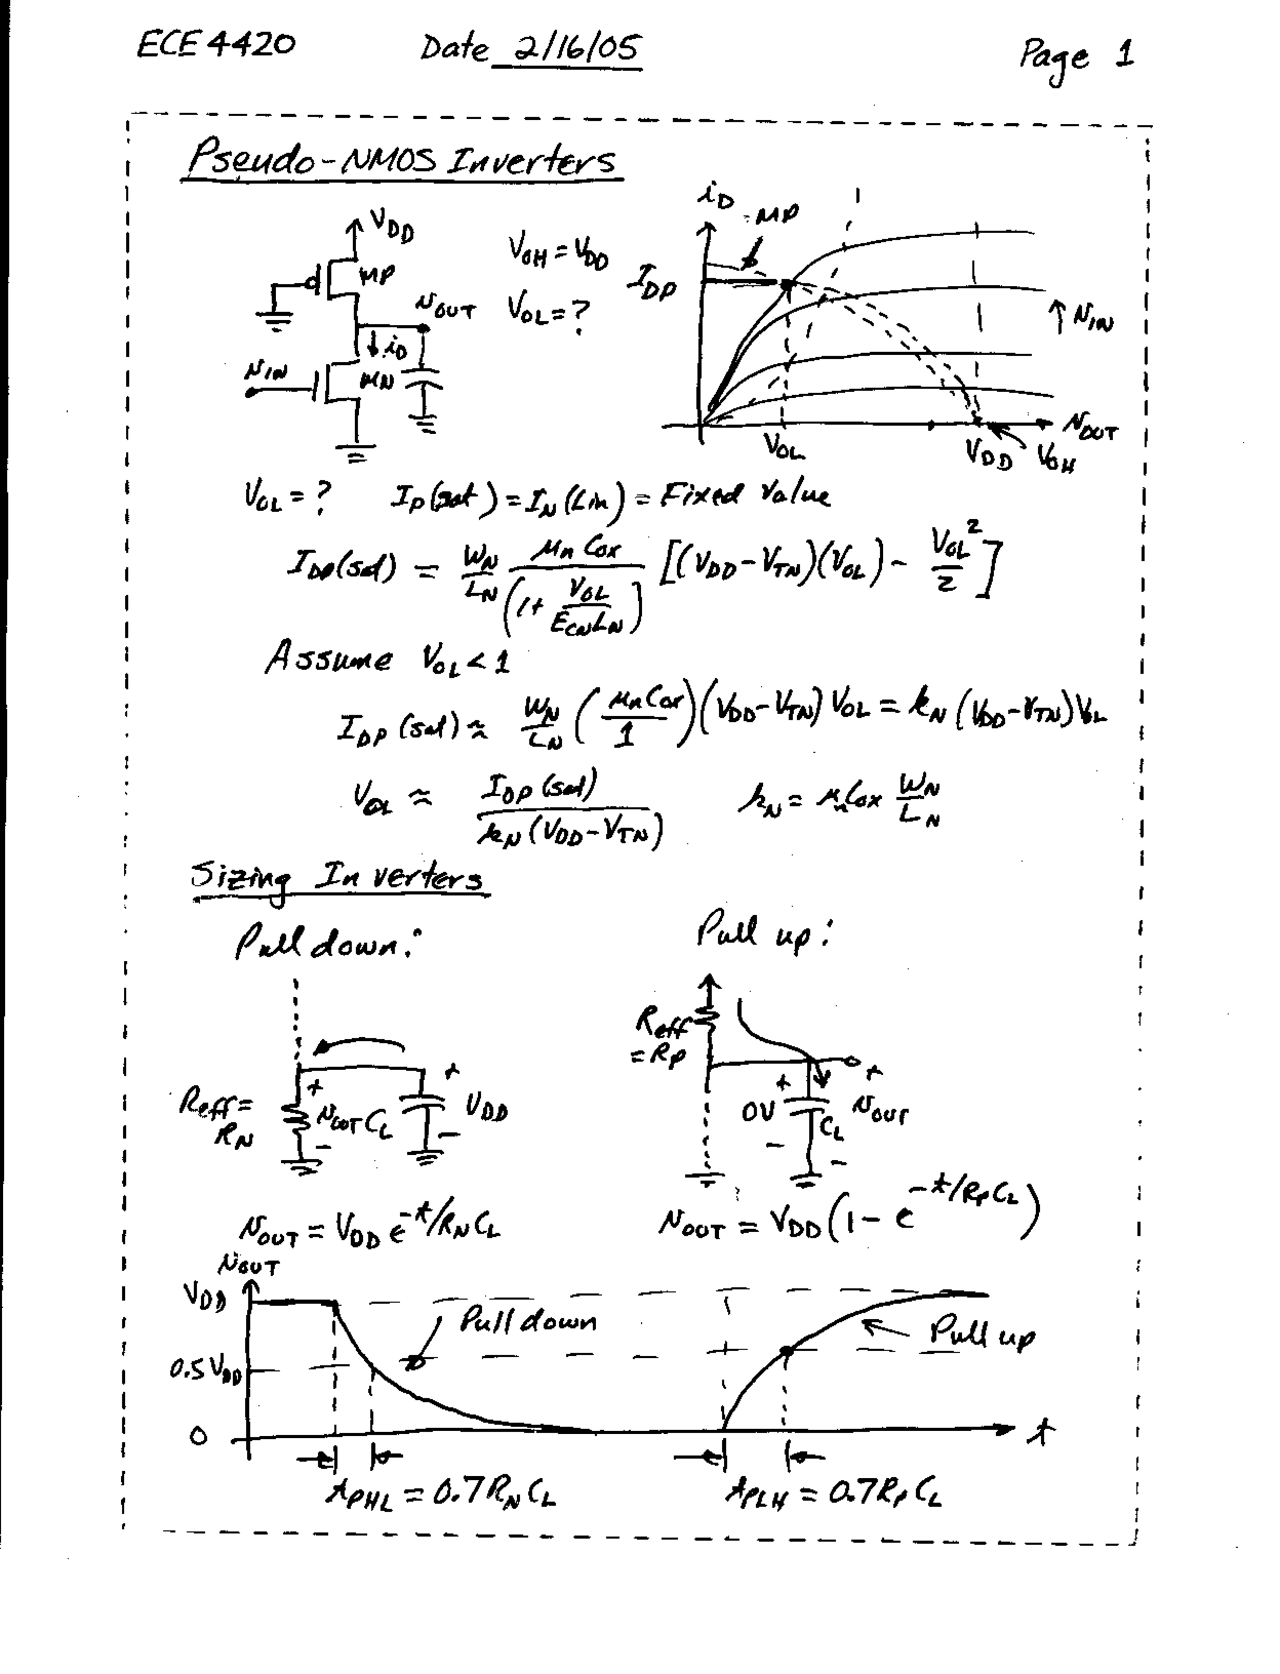 ECE 4420 Date 2/16/05 Page 1
Pseudo-NMOS Inverters
V_DD
MP
v_OUT
i_D
v_IN
MN
V_OH = V_DD
V_OL = ?
i_D
MP
I_DP
↑ v_IN
V_OL
V_DD
V_OH
v_OUT
V_OL = ? I_P(sat) = I_N(Lin) = Fixed Value
I_DP(sat) = W_N/L_N μ_n Cox/(1 + V_OL/(E_CN L_N)) [(V_DD - V_TN)(V_OL) - V_OL²/2]
Assume V_OL < 1
I_DP(sat) ≈ W_N/L_N (μ_n Cox/1)(V_DD - V_TN) V_OL = k_N (V_DD - V_TN) V_OL
V_OL ≈ I_DP(sat)/(k_N (V_DD - V_TN)) k_N = μ_n Cox W_N/L_N
Sizing Inverters
Pull down:
Pull up:
Reff = R_N
+
v_OUT
-
C_L
+
V_DD
-
Reff = R_P
+
0V
-
C_L
+
v_OUT
-
v_OUT = V_DD e^(-t/R_N C_L)
v_OUT = V_DD (1 - e^(-t/R_P C_L))
v_OUT
V_DD
Pull down
Pull up
0.5 V_DD
0
t
t_PHL = 0.7 R_N C_L
t_PLH = 0.7 R_P C_L